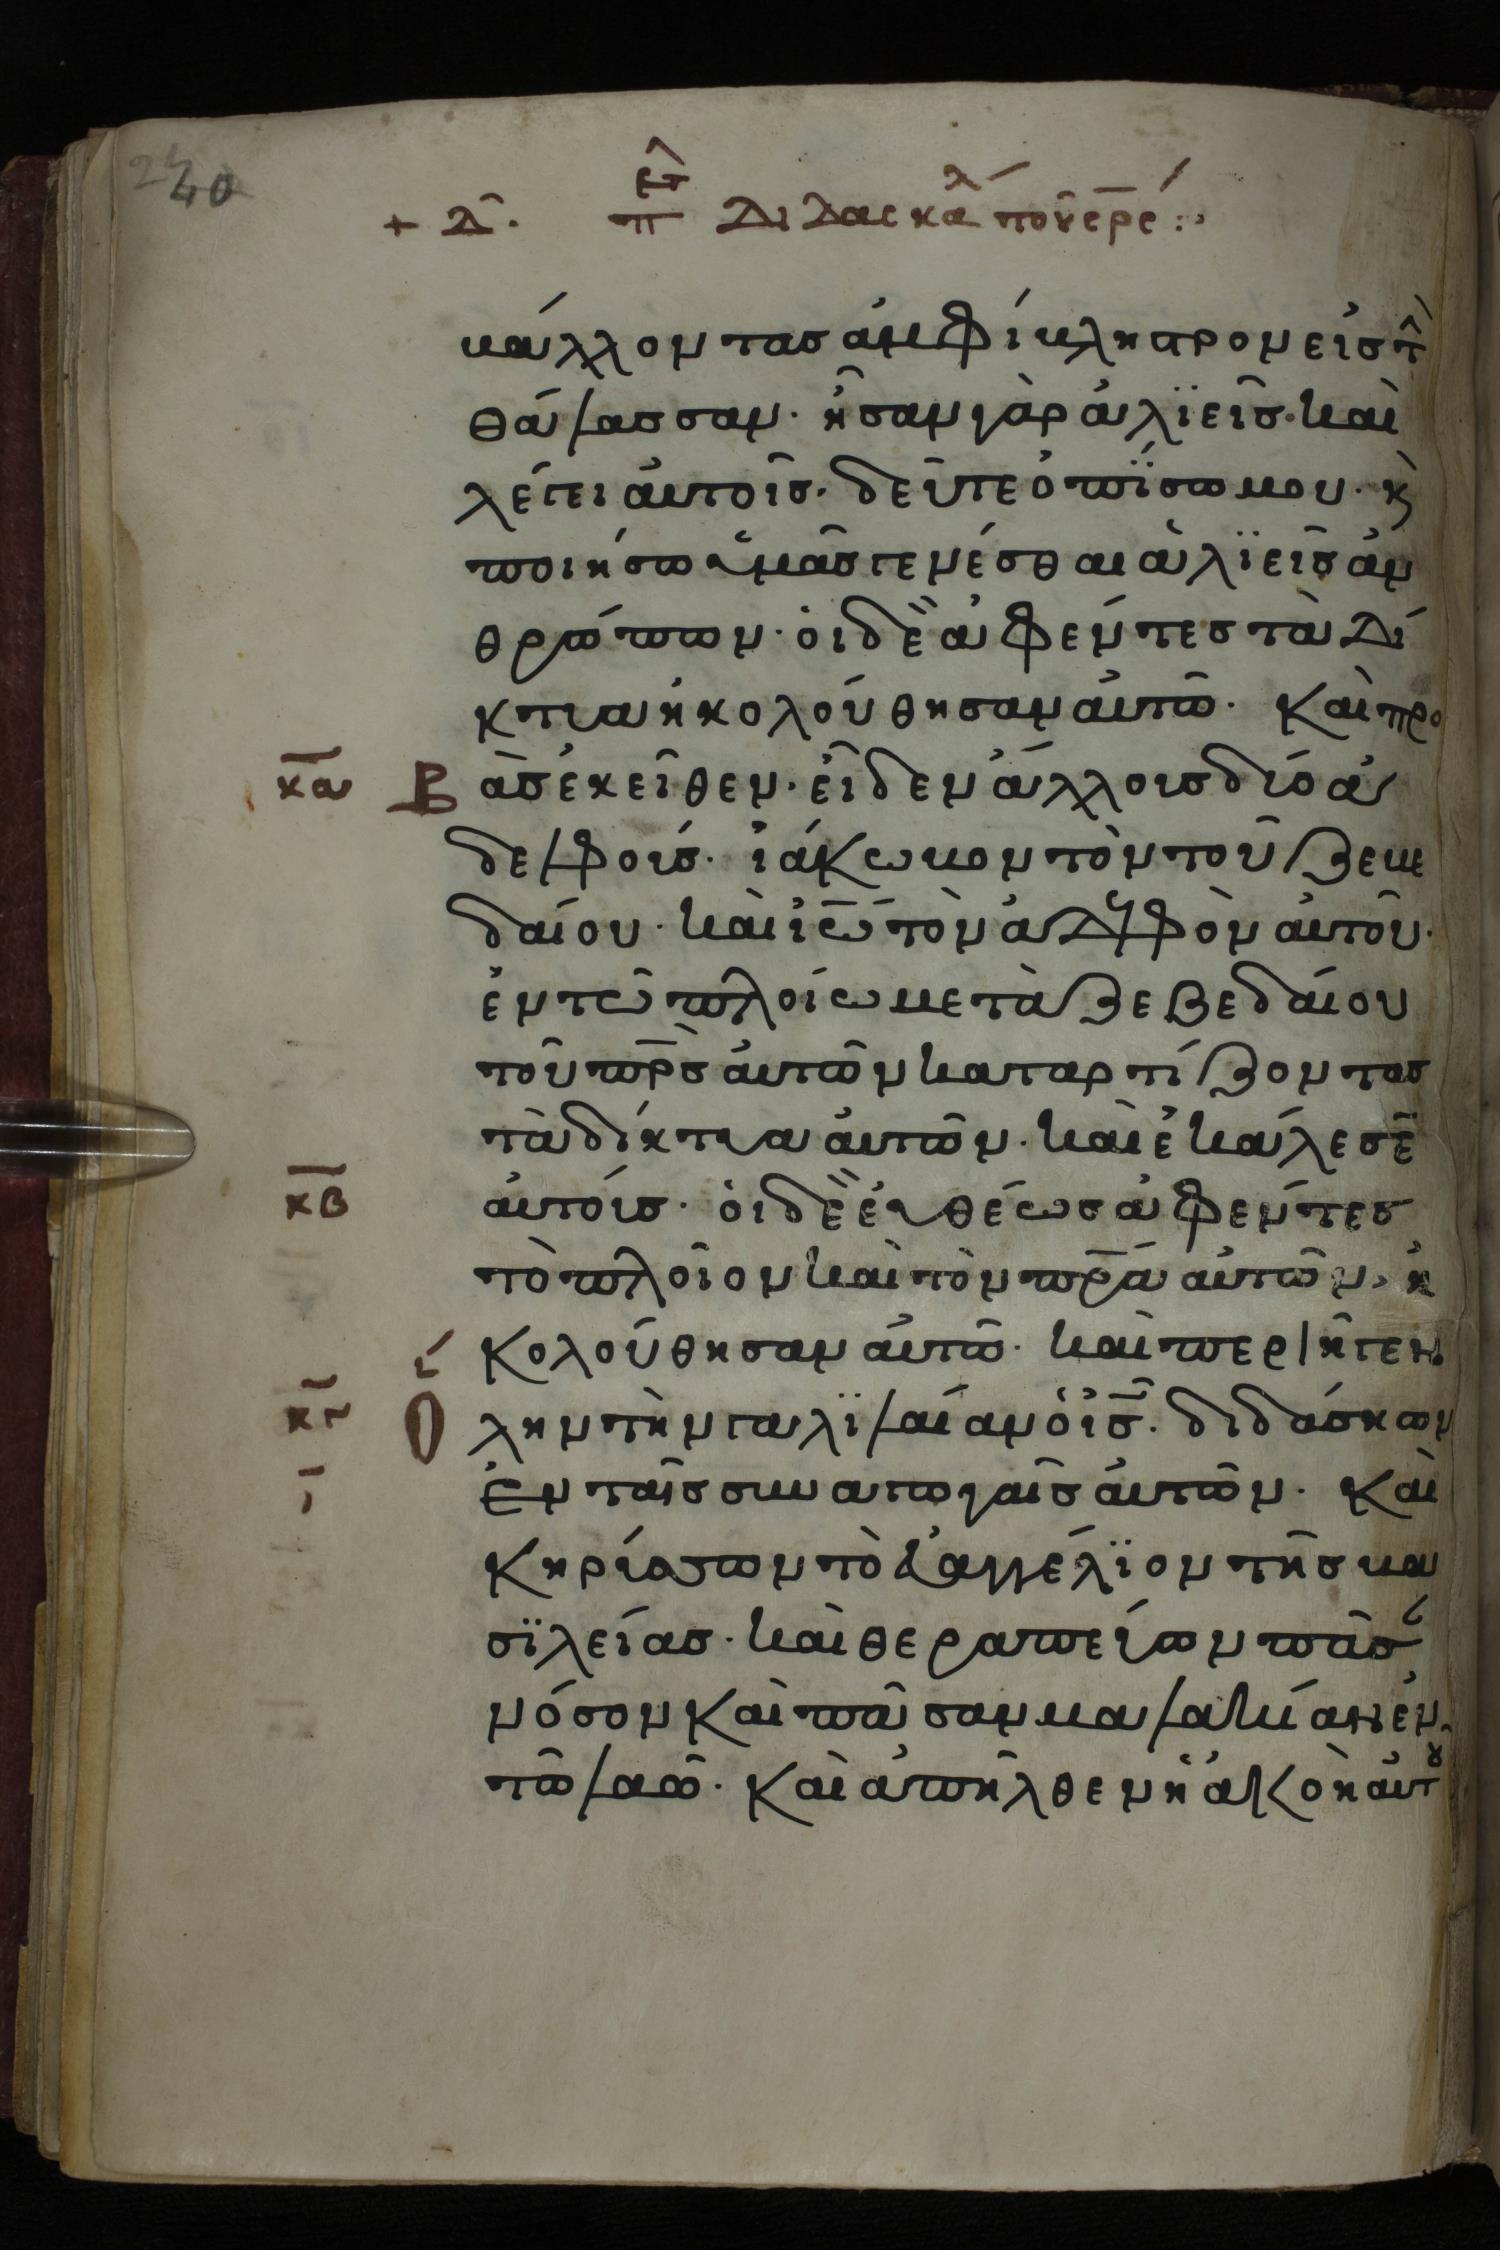 240
+ Δ. ἐπὶ π Διδασκαλ πουερε :·
βάλλοντας ἀμφίβληστρον εἰς τ
θάλασσαν. ἦσαν γὰρ ἁλϊεῖς. καὶ
λέγει αὐτοῖς. δεῦτε ὀπΐσω μου. κ
ποιήσω ὑμᾶς γενέσθαι ἁλϊεῖς ἀν
θρώπων. οἱ δὲ ἀφέντες τὰ δί
κτυα ἠκολούθησαν αὐτῶ. καὶ προ
κα Β ὰς ἐκεῖθεν. εἶδεν ἄλλοις δύο ἀ
δελφοίς. ἰάκωβον τὸν τοῦ ζεβε
δαίου. καὶ ἰω τὸν ἀδελφὸν αὐτοῦ.
ἐν τῶ πλοίω μετὰ ζεβεδαίου
τοῦ πρς αὐτῶν καταρτίζοντας
τὰ δίκτυα αὐτῶν. καὶ ἐκάλεσε
κβ αὐτοίς. οἱ δὲ εὐθέως ἀφέντες
τὸ πλοῖον καὶ τὸν πρα αὐτῶν, ἠ
κολούθησαν αὐτῶ. καὶ περιῆγεν
κγ λην τὴν γαλϊλαίαν ὁ ις. διδάσκων
ἐν ταῖς συναγωγαῖς αὐτῶν. καὶ
κηρύσσων τὸ εὐαγγέλϊον τῆς βα
σϊλείας. καὶ θεραπεύων πᾶσ
νόσον καὶ πᾶσαν μαλακίαν ἐν
τῶ λαῶ. καὶ ἀπῆλθεν ἡ ἀκοὴ αὐτου